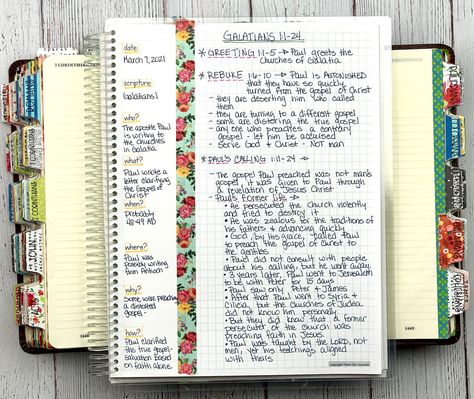 1 CORINTHIA
date
March 7, 2021
scripture
Galatians 1
who?
The apostle Paul
is writing to
the churches
in Galatia
what?
Paul wrote a
letter clarifying
the Gospel of
Christ
when?
probably
48-49 AD
where?
Paul was
possibly writing
from Antioch
why?
Some were preaching
a distorted
gospel.
how?
Paul clarified
the true gospel-
Salvation based
on faith alone.
GALATIANS 1:1-24
* GREETING 1:1-5 → Paul greets the
Churches of Galatia
* REBUKE 1:6-10 → Paul is ASTONISHED
that they have so quickly
turned from the gospel of Christ
- they are deserting him who called
them
- they are turning to a different gospel
- some are distorting the true gospel
- any one who preaches a contrary
gospel - let him be accursed
- Serve God + Christ - Not man
* PAUL'S CALLING 1:11-24 →
- The gospel Paul preached was not man's
gospel, it was given to Paul through
a revelation of Jesus Christ
- Paul's former life →
• He persecuted the church violently
and tried to destroy it
• He was zealous for the traditions of
his fathers & advancing quickly
• God, by His grace, called Paul
to preach the gospel of Christ to
the gentiles
• Paul did not consult with people
about his calling, but he went away.
• 3 years later, Paul went to Jerusalem
to be with Peter for 15 days
• Paul saw only Peter + James
• After that Paul went to Syria +
Cilicia, but the churches of Judea
did not know him personally
• But they did know that a former
persecuter of the church was
preaching faith in Jesus
• Paul was taught by the LORD, not
men, yet his teachings aligned
with theirs